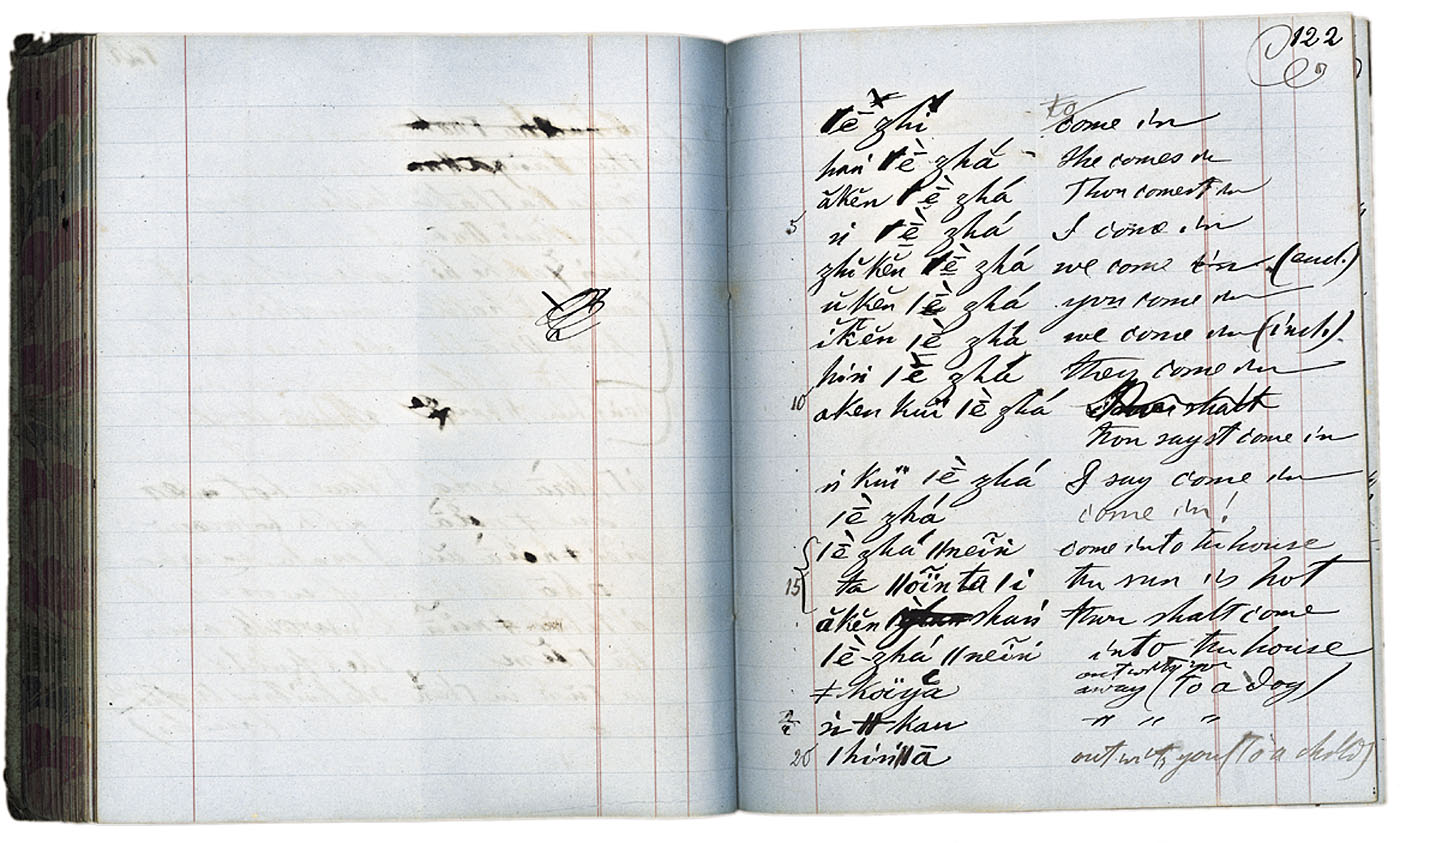 122
|ē zhi to come in
hań |ē zhá she comes in
ăkĕn |ē zhá Thou comest in
5 ń |ē zhá I come in
zhŭ kĕn |ē zhá we come in (excl.)
ŭ kĕn |ē zhá you come in
ĭ kĕn |ē zhá we come in (incl.)
hiń |ē zhá they come in
10 aken kuï |ē zhá shalt
thou sayst come in
ń kuï |ē zhá I say come in
|ē zhá come in!
|ē zhá ||neiñ come into the house
15 ta ||öïnta |i the sun is hot
ăkĕn shań thou shalt come
|ē-zhá ||neiñ into the house
out with you
ǂ köïyă away (to a dog)
ń ǂ kau " " "
20 |hiń||ā out with you (to a child)